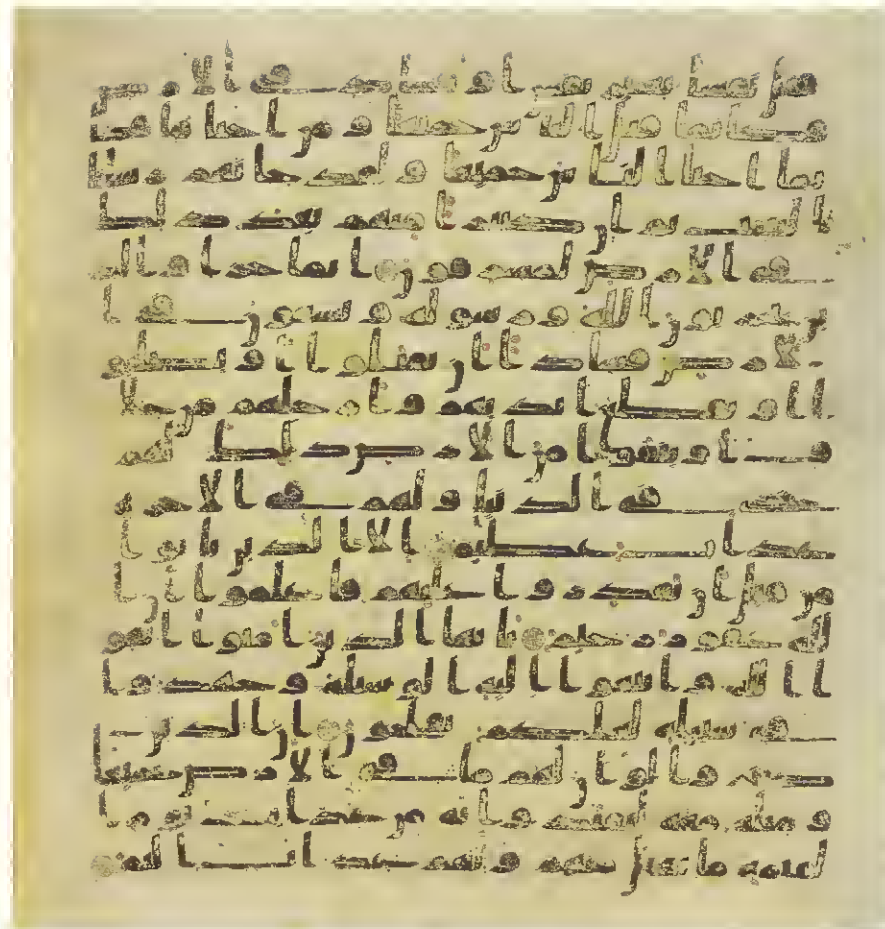 قتل نفسا بغير نفس او فساد في الارض
فكانما قتل الناس جميعا ومن احياها فكا
نما احيا الناس جميعا ولقد جاتهم رسلنا
بالبينت ثم ان كثيرا منهم بعد ذلك
في الارض لمسرفون انما جزاوا الذ
ين يحاربون الله ورسوله ويسعون في ا
لارض فسادا ان يقتلوا او يصلبو
ا او تقطع ايديهم وارجلهم من خلا
ف او ينفوا من الارض ذلك لهم
خزي في الدنيا ولهم في الاخرة
عذاب عظيم الا الذين تابوا
من قبل ان تقدروا عليهم فاعلموا ان ا
لله غفور رحيم يايها الذين امنوا اتقو
ا الله وابتغوا اليه الوسيلة وجهدوا
في سبيله لعلكم تفلحون ان الذين
كفروا لو ان لهم ما في الارض جميعا
ومثله معه ليفتدوا به من عذاب يوم ا
لقيمة ما تقبل منهم ولهم عذاب اليم